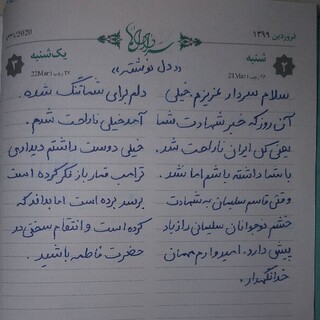 فروردین ۱۳۹۹
شنبه ۲ 21Mar
یک‌شنبه ۳ 22Mar
((دل نوشته))
سلام سردار عزیزم خیلی دلم برای شما تنگ شده.
آن روز که خبر شهادت شما آمد خیلی ناراحت شدم.
یعنی کل ایران ناراحت شد. خیلی دوست داشتم دیداری
با شما داشته باشم اما نشد. ترامپ قمار باز فکر کرده است
وقتی قاسم سلیمان به شهادت برسد برده است اما بداند که
خشم نوجوانان سلیمان را زیاد کرده است و انتقام سختی در
پیش دارد. امیدوارم مهمان حضرت فاطمه باشید.
خدانگهدار.